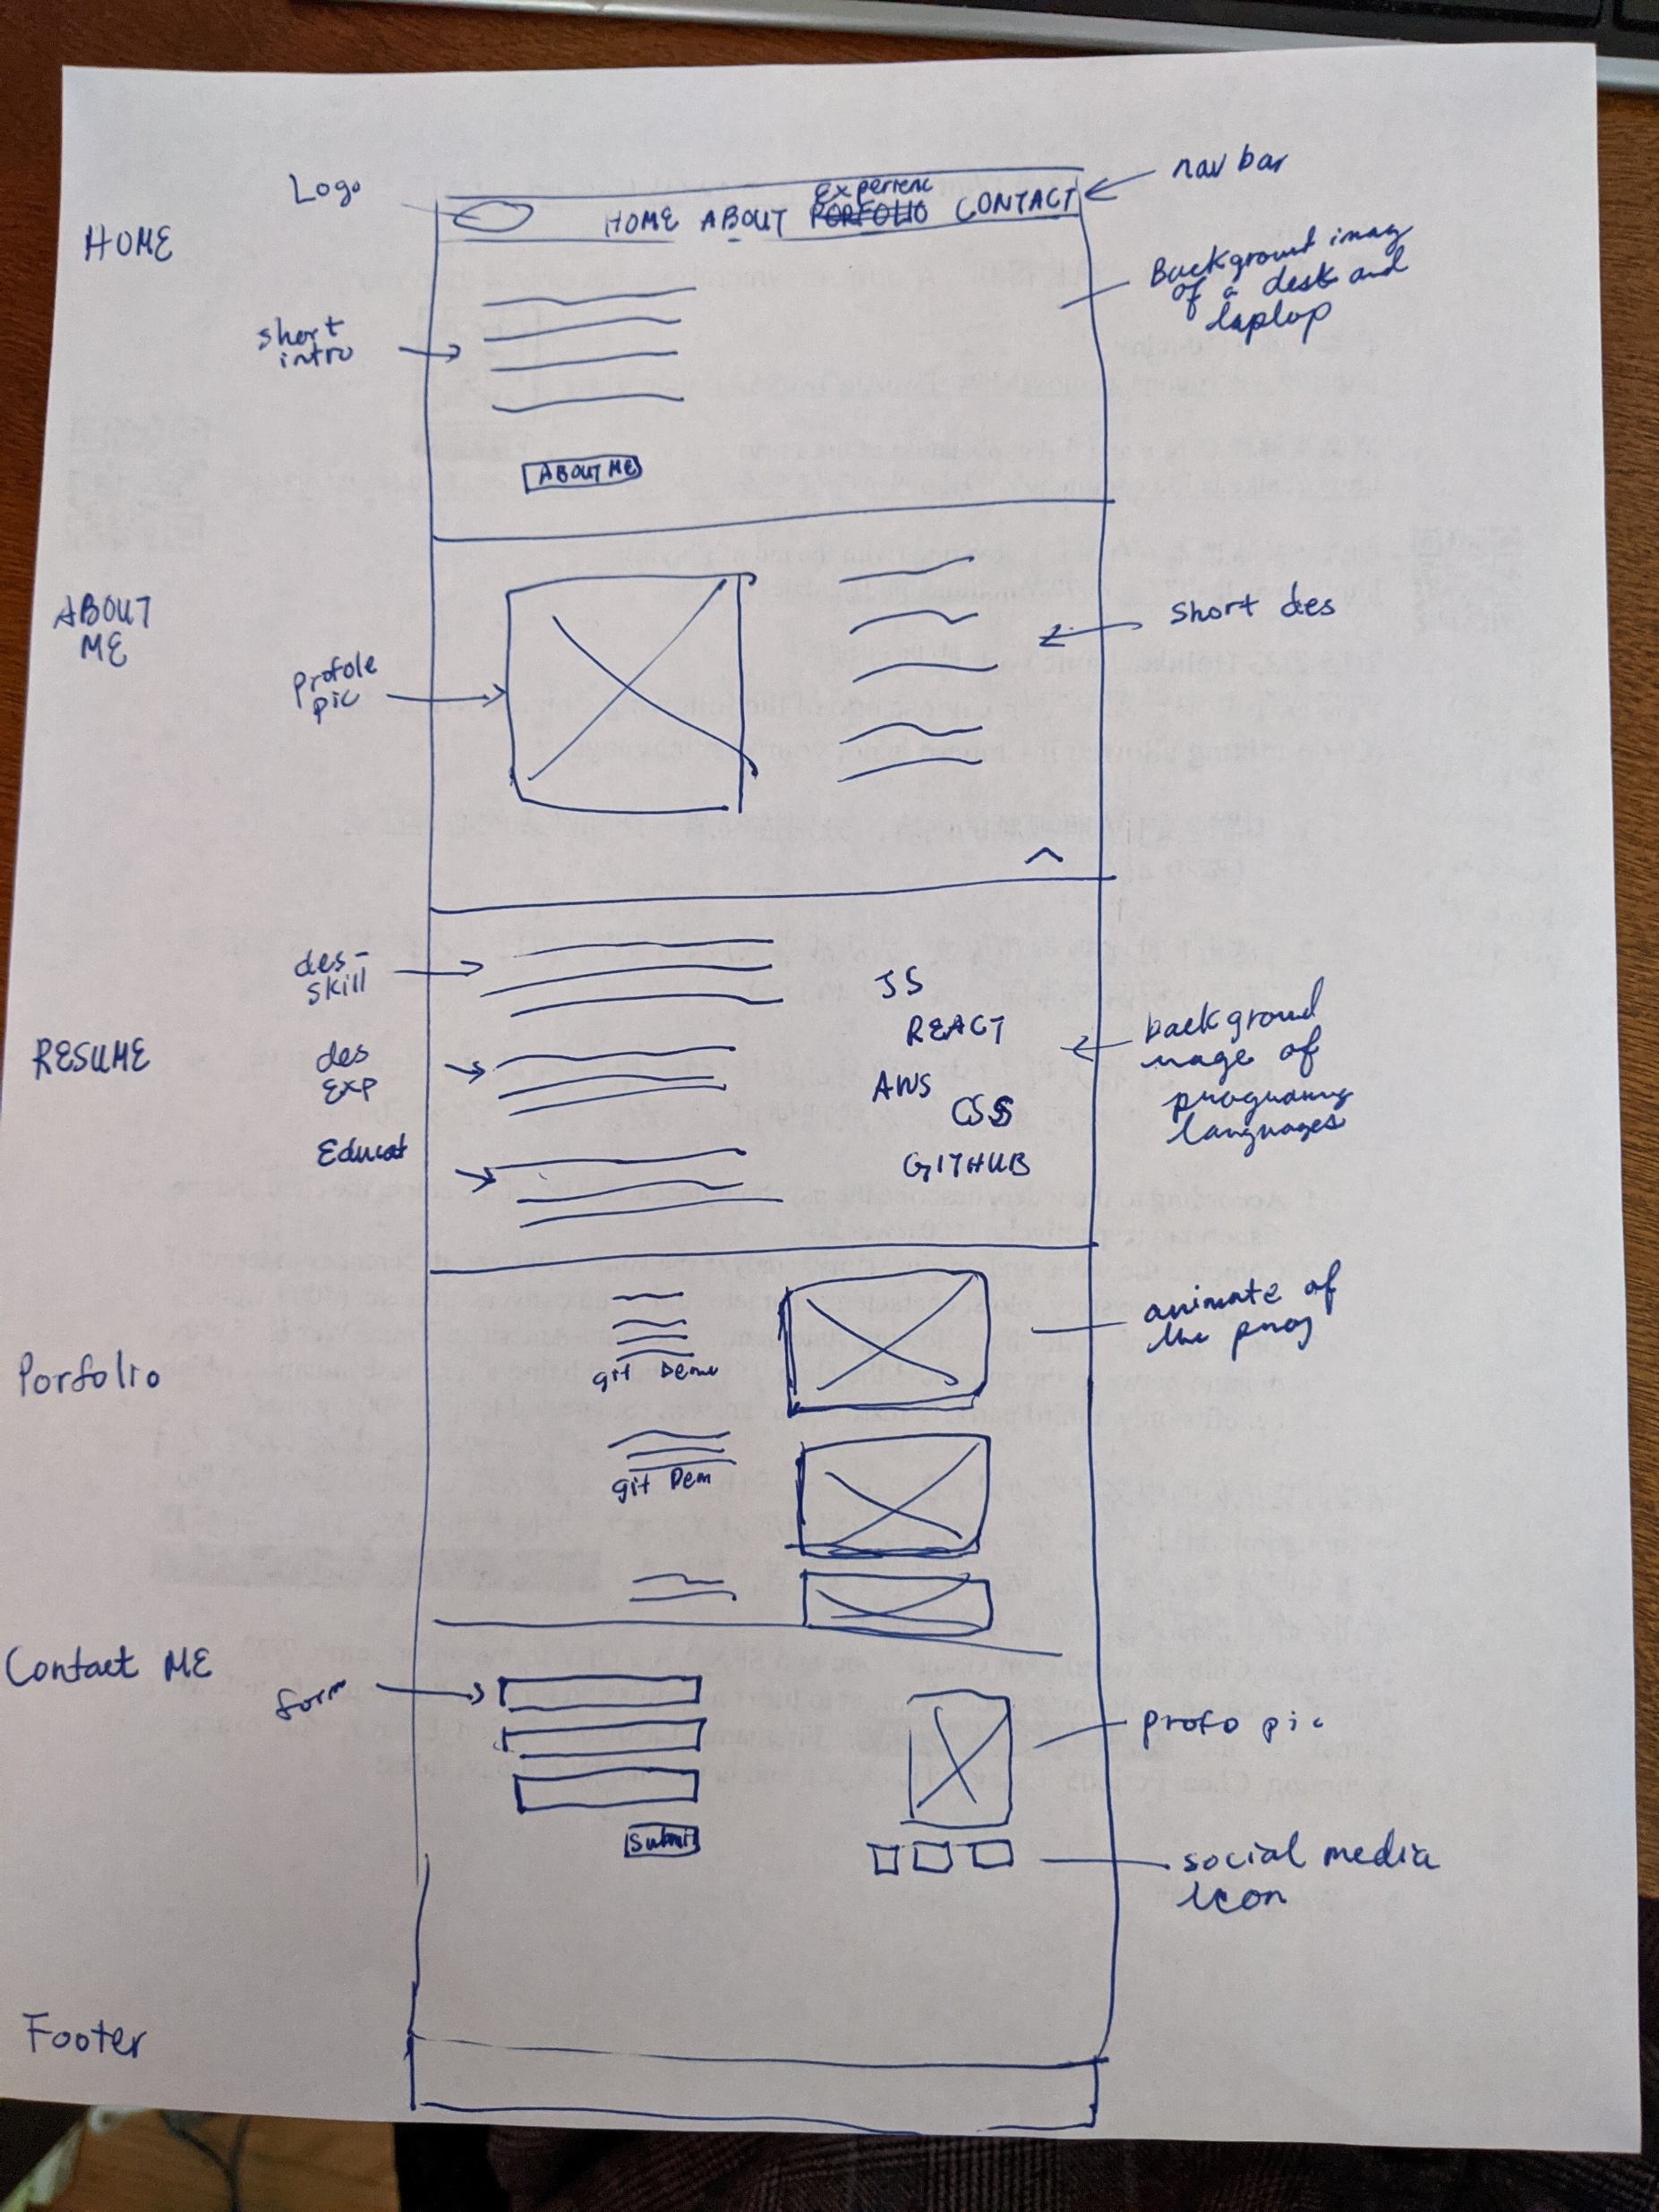 Logo
nav bar
Experienc
HOME ABOUT PORFOLIO CONTACT
HOME
Background imag
of a desk and
laptop
short
intro
ABOUT ME
ABOUT
ME
short des
Profole
pic
^
des-
skill
JS
REACT
RESUME
des
Exp
AWS
CSS
backgroud
of
languages
Educat
GITHUB
animate of
the prog
git Demo
Porfolio
git Dem
Contact ME
form
profo pic
Submit
social media
icon
Footer